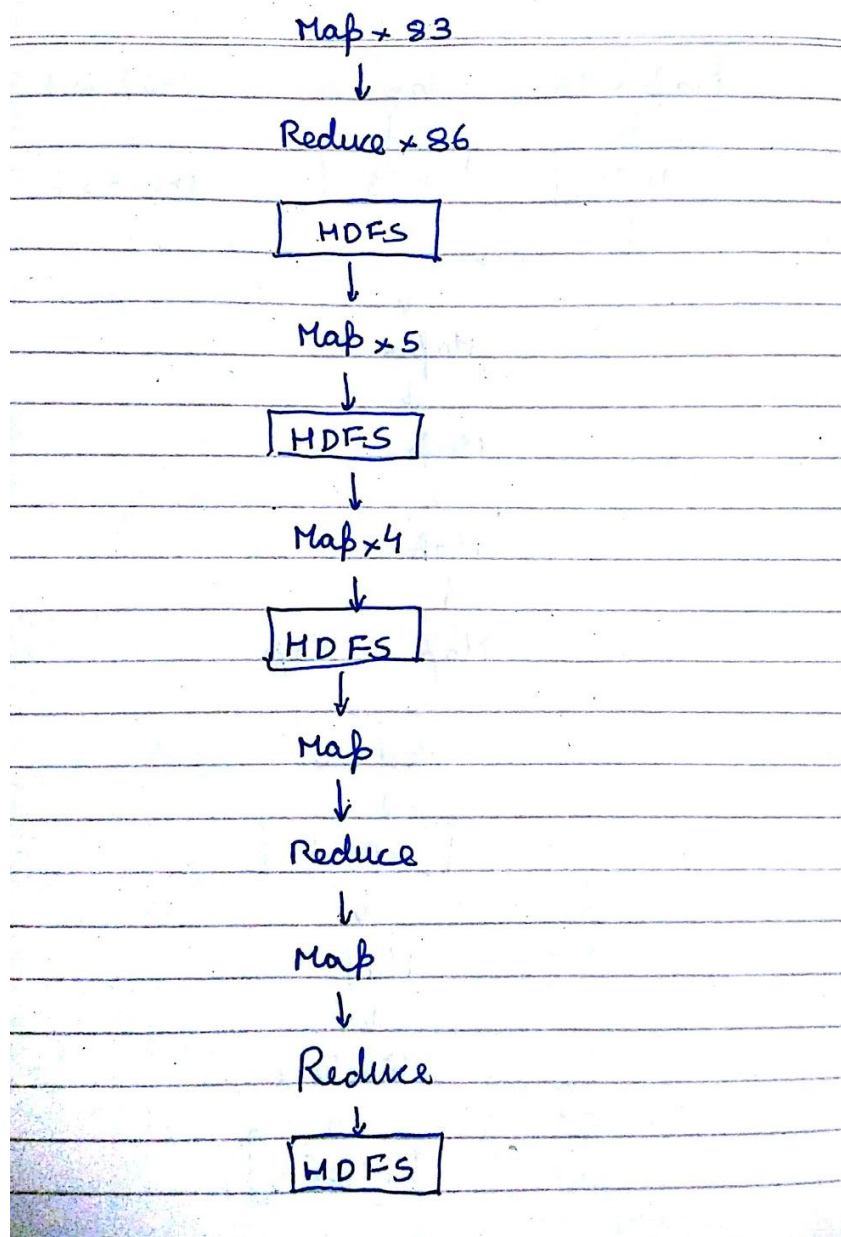 Map x 83
↓
Reduce x 86
HDFS
↓
Map x 5
↓
HDFS
↓
Map x 4
↓
HDFS
↓
Map
↓
Reduce
↓
Map
↓
Reduce
↓
HDFS